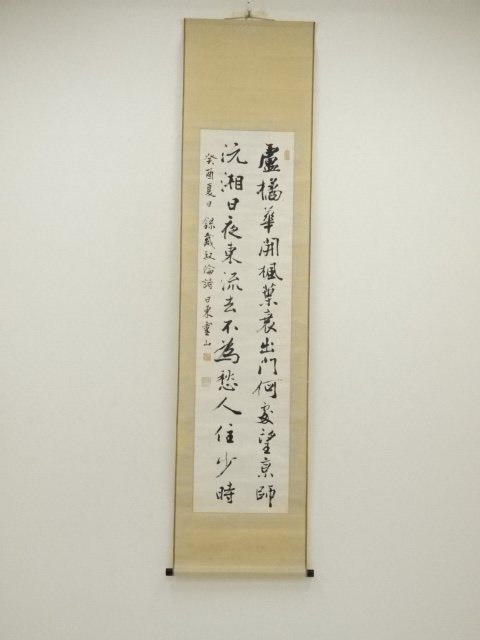 盧橘華開楓葉衰出門何處望京師
沅湘日夜東流去不為愁人住少時
癸酉夏日錄戴叔倫詩日東霊山